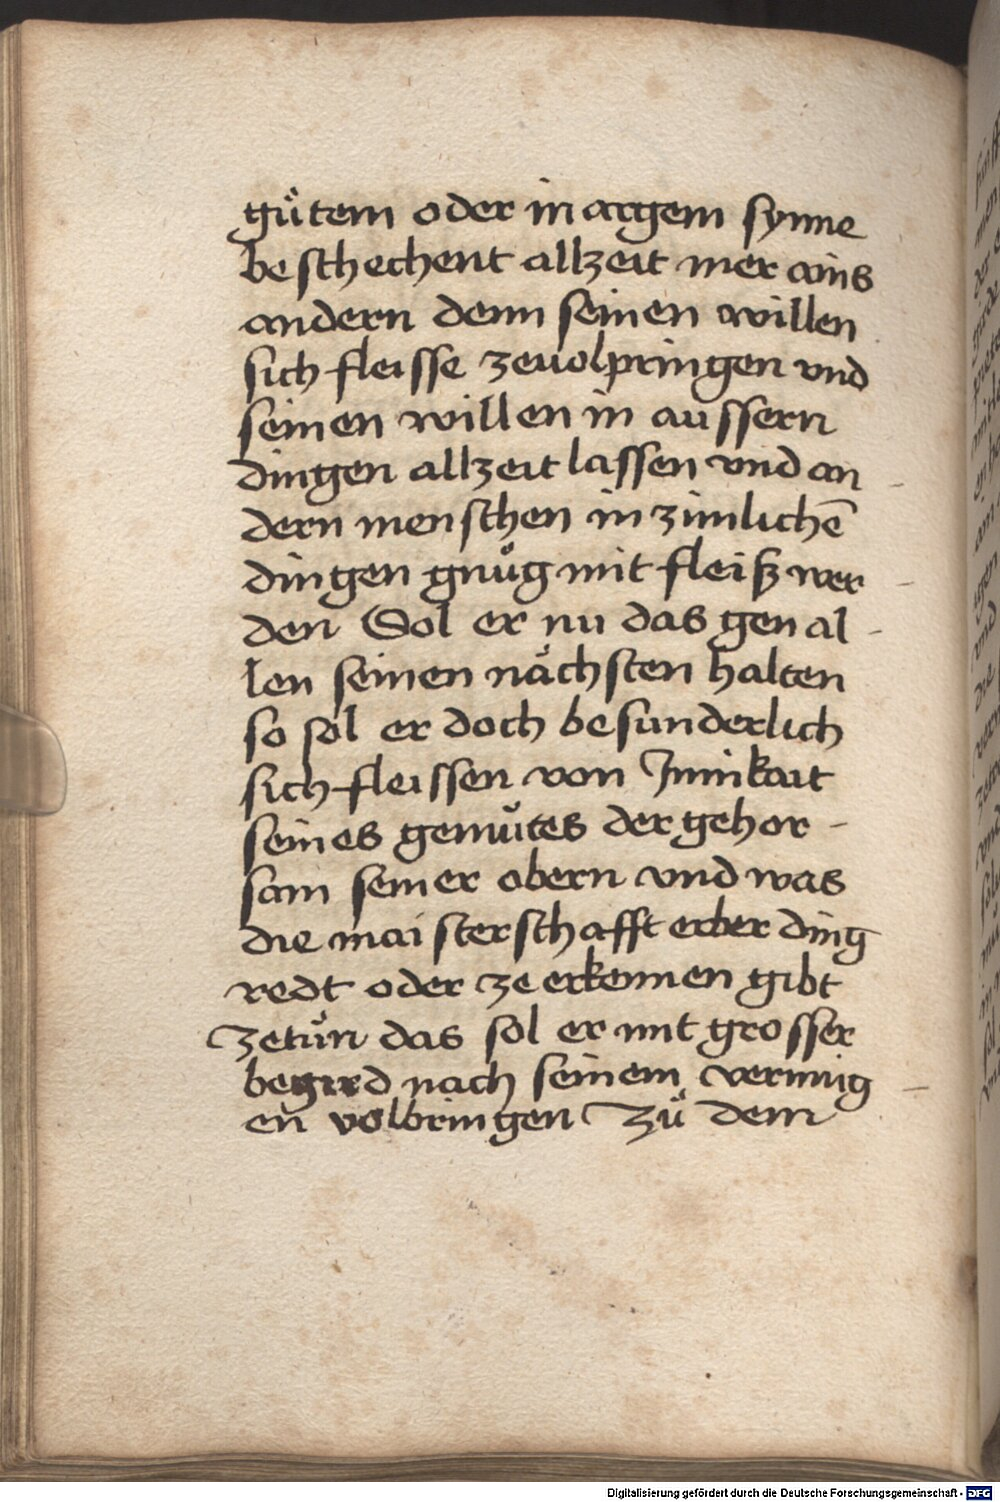 gůtem oder in argem synne
beschechent allzeit mer ains
andern denn seinen willen
sich fleisse zeuolpringen vnd
seinen willen in aussern
dingen allzeit lassen vnd an
dern menschen in zimlichē
dingen gnůg mit fleiß wer
den Sol er nu das gen al-
len seinen nåchsten halten
so sol er doch besunderlich
sich fleissen von Innikait
seines gemůtes der gehor-
sam seiner obern vnd was
die maisterschafft erber ding
redt oder ze erkennen gibt
zetůn das sol er mit grosser
begird nach seinem vermüg
en volbringen Zů dem
Digitalisierung gefördert durch die Deutsche Forschungsgemeinschaft - DFG